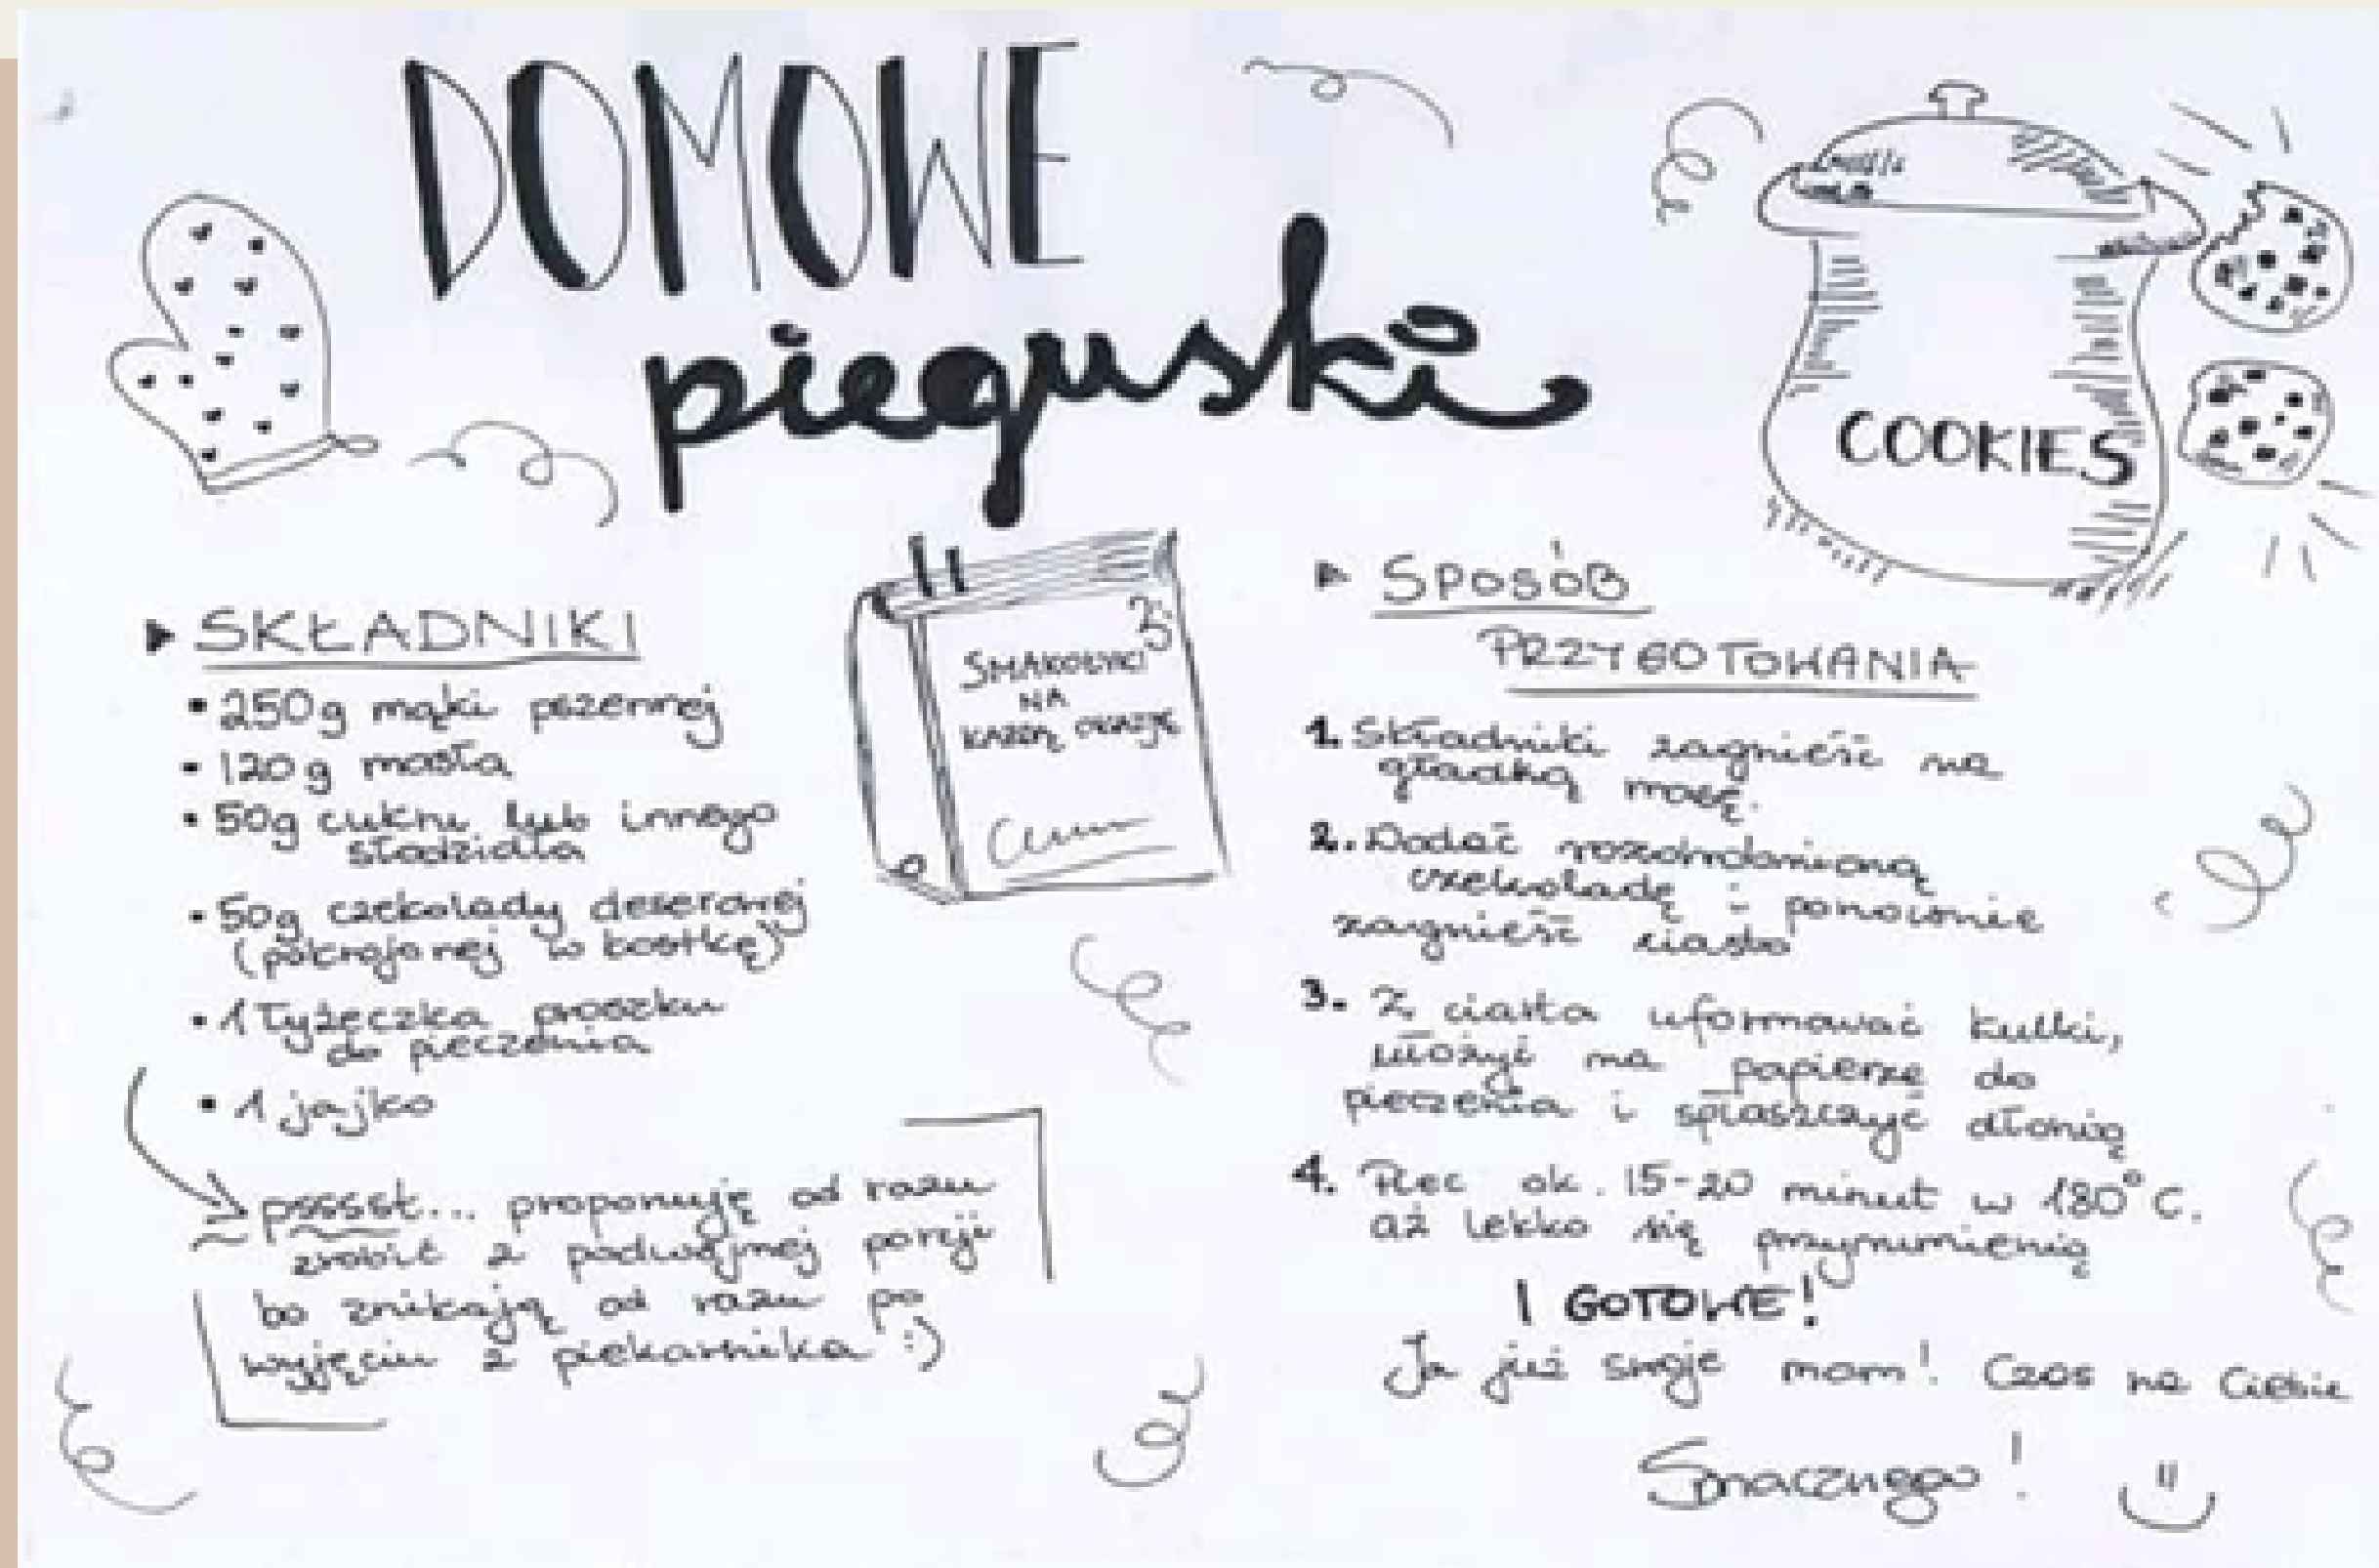 DOMOWE
pieguski
COOKIES
SMAKOŁYKI
NA
KAŻDĄ OKAZJĘ
▶ SKŁADNIKI
• 250g mąki pszennej
• 120g masła
• 50g cukru lub innego
słodzidła
• 50g czekolady deserowej
(pokrojonej w kostkę)
• 1 łyżeczka proszku
do pieczenia
• 1 jajko
psssst... proponuję od razu
zrobić z podwójnej porcji
bo znikają od razu po
wyjęciu z piekarnika :)
▶ SPOSÓB
PRZYGOTOWANIA
1. Składniki zagnieść na
gładką masę.
2. Dodać rozdrobnioną
czekoladę i ponownie
zagnieść ciasto
3. Z ciasta uformować kulki,
ułożyć na papierze do
pieczenia i spłaszczyć dłonią
4. Piec ok. 15-20 minut w 180°C.
aż lekko się przyrumienią
I GOTOWE!
Ja już swoje mam! Czas na Ciebie
Smacznego!